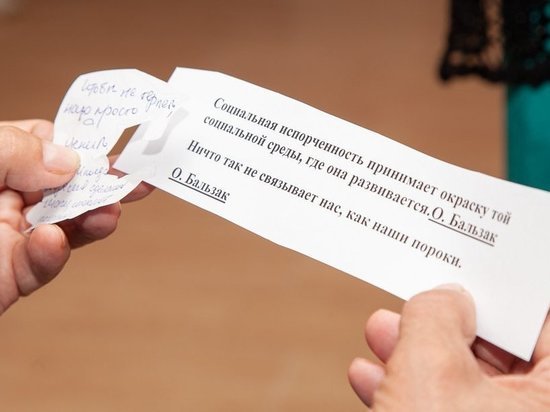 чтобы не терпеть
надо просто
уметь
Социальная испорченность принимает окраску той
социальной среды, где она развивается.О. Бальзак
Ничто так не связывает нас, как наши пороки.
О. Бальзак